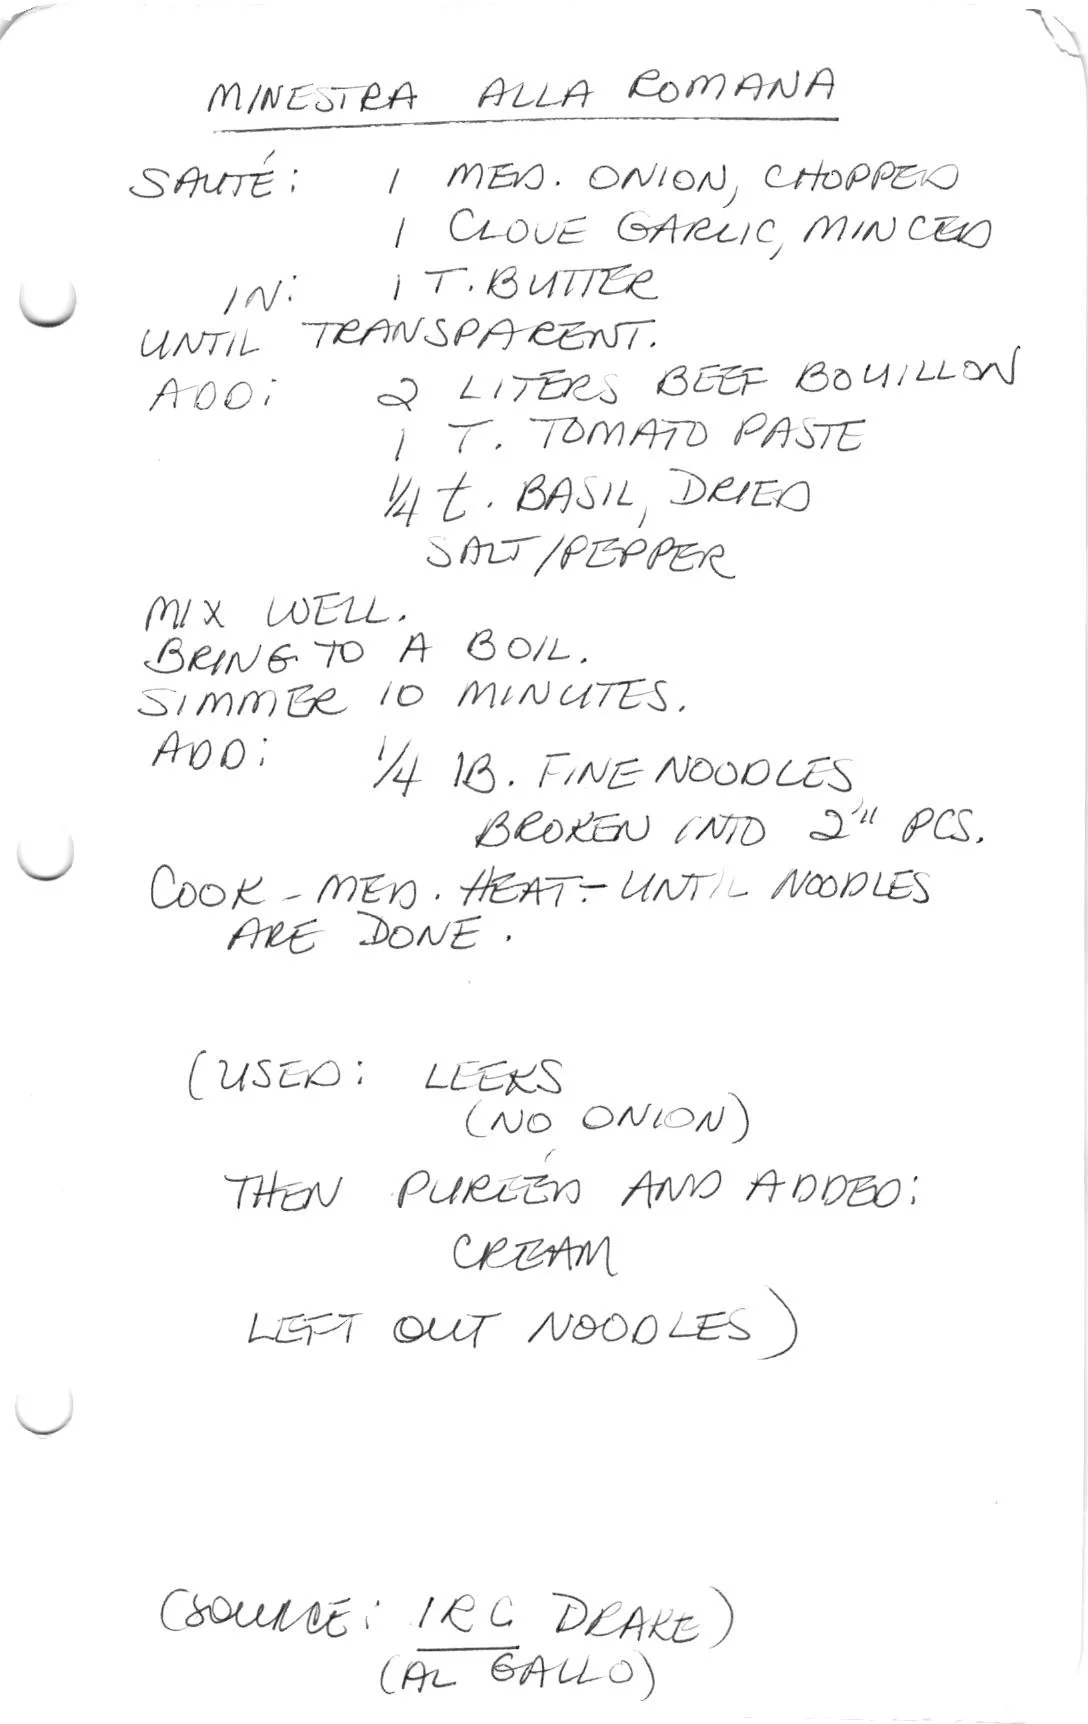 MINESTRA ALLA ROMANA
SAUTÉ: 1 MED. ONION, CHOPPED
1 CLOVE GARLIC, MINCED
IN: 1 T. BUTTER
UNTIL TRANSPARENT.
ADD: 2 LITERS BEEF BOUILLON
1 T. TOMATO PASTE
1/4 t. BASIL, DRIED
SALT/PEPPER
MIX WELL.
BRING TO A BOIL.
SIMMER 10 MINUTES.
ADD: 1/4 lB. FINE NOODLES
BROKEN INTO 2" PCS.
COOK - MED. HEAT - UNTIL NOODLES
ARE DONE.
(USED: LEEKS
(NO ONION)
THEN PUREÉD AND ADDED:
CREAM
LEFT OUT NOODLES)
(SOURCE: IRC DRAKE)
(AL GALLO)